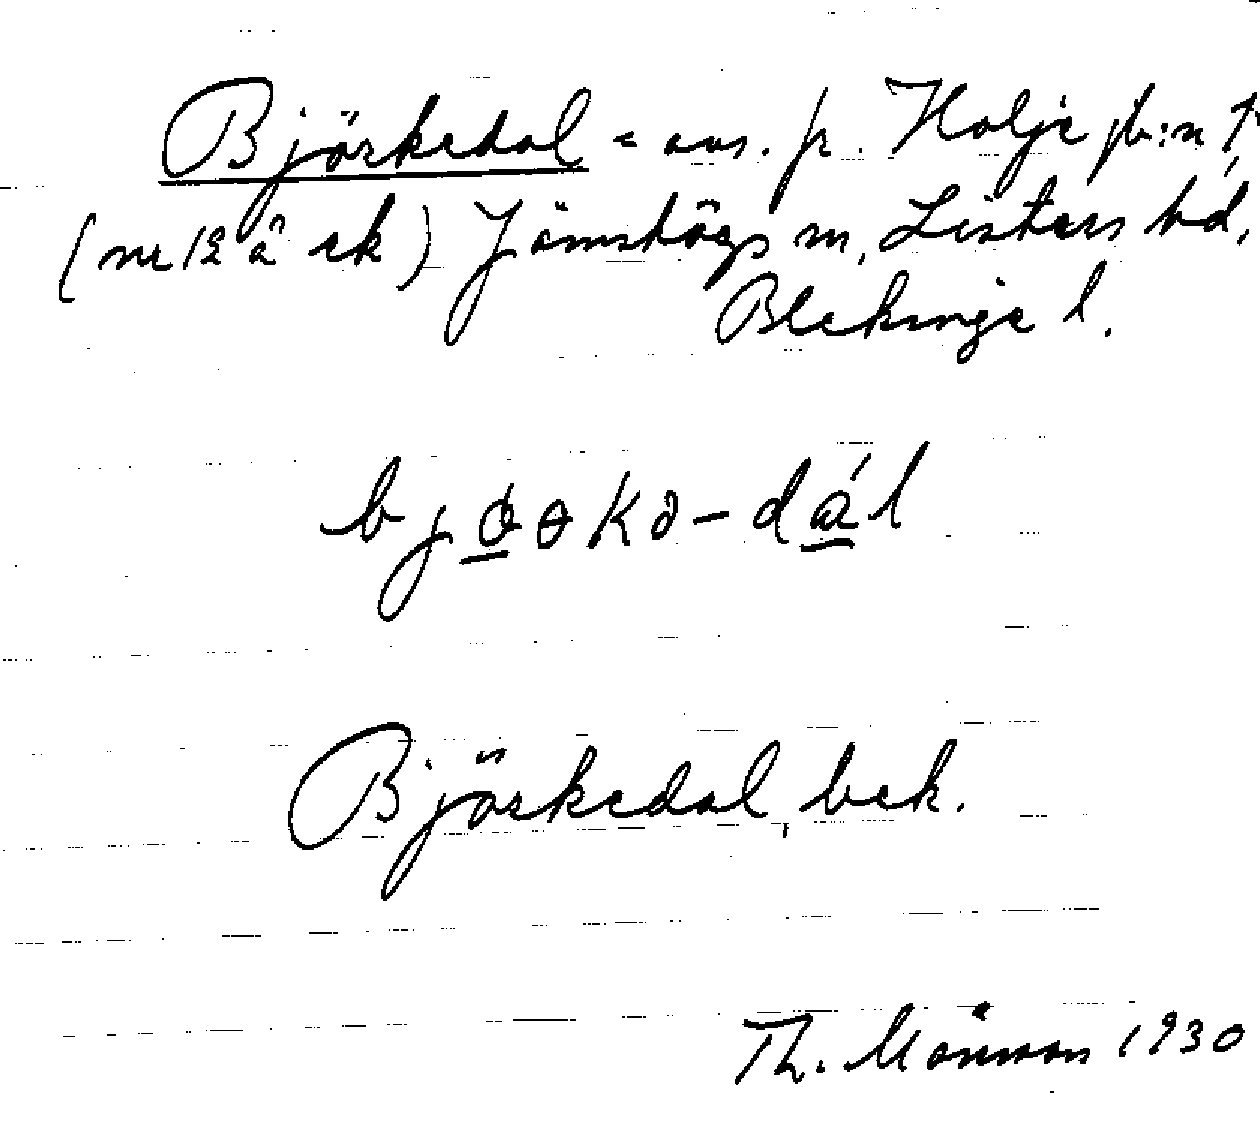 Björkedal = avs. fr. Holje jb:n 1,
(nr 12 å ek) Jämshögs sn, Listers hd,
Blekinge l.
bjo̱ɵkə-dál
Björkedal, bek.
Th. Månsson 1930